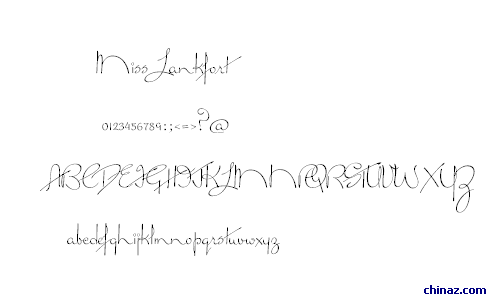 Miss Lankfort
0123456789:;<=>?@
ABCDEFGHIJKLMNOPQRSTUVWXYZ
abcdefghijklmnopqrstuvwxyz
chinaz.com